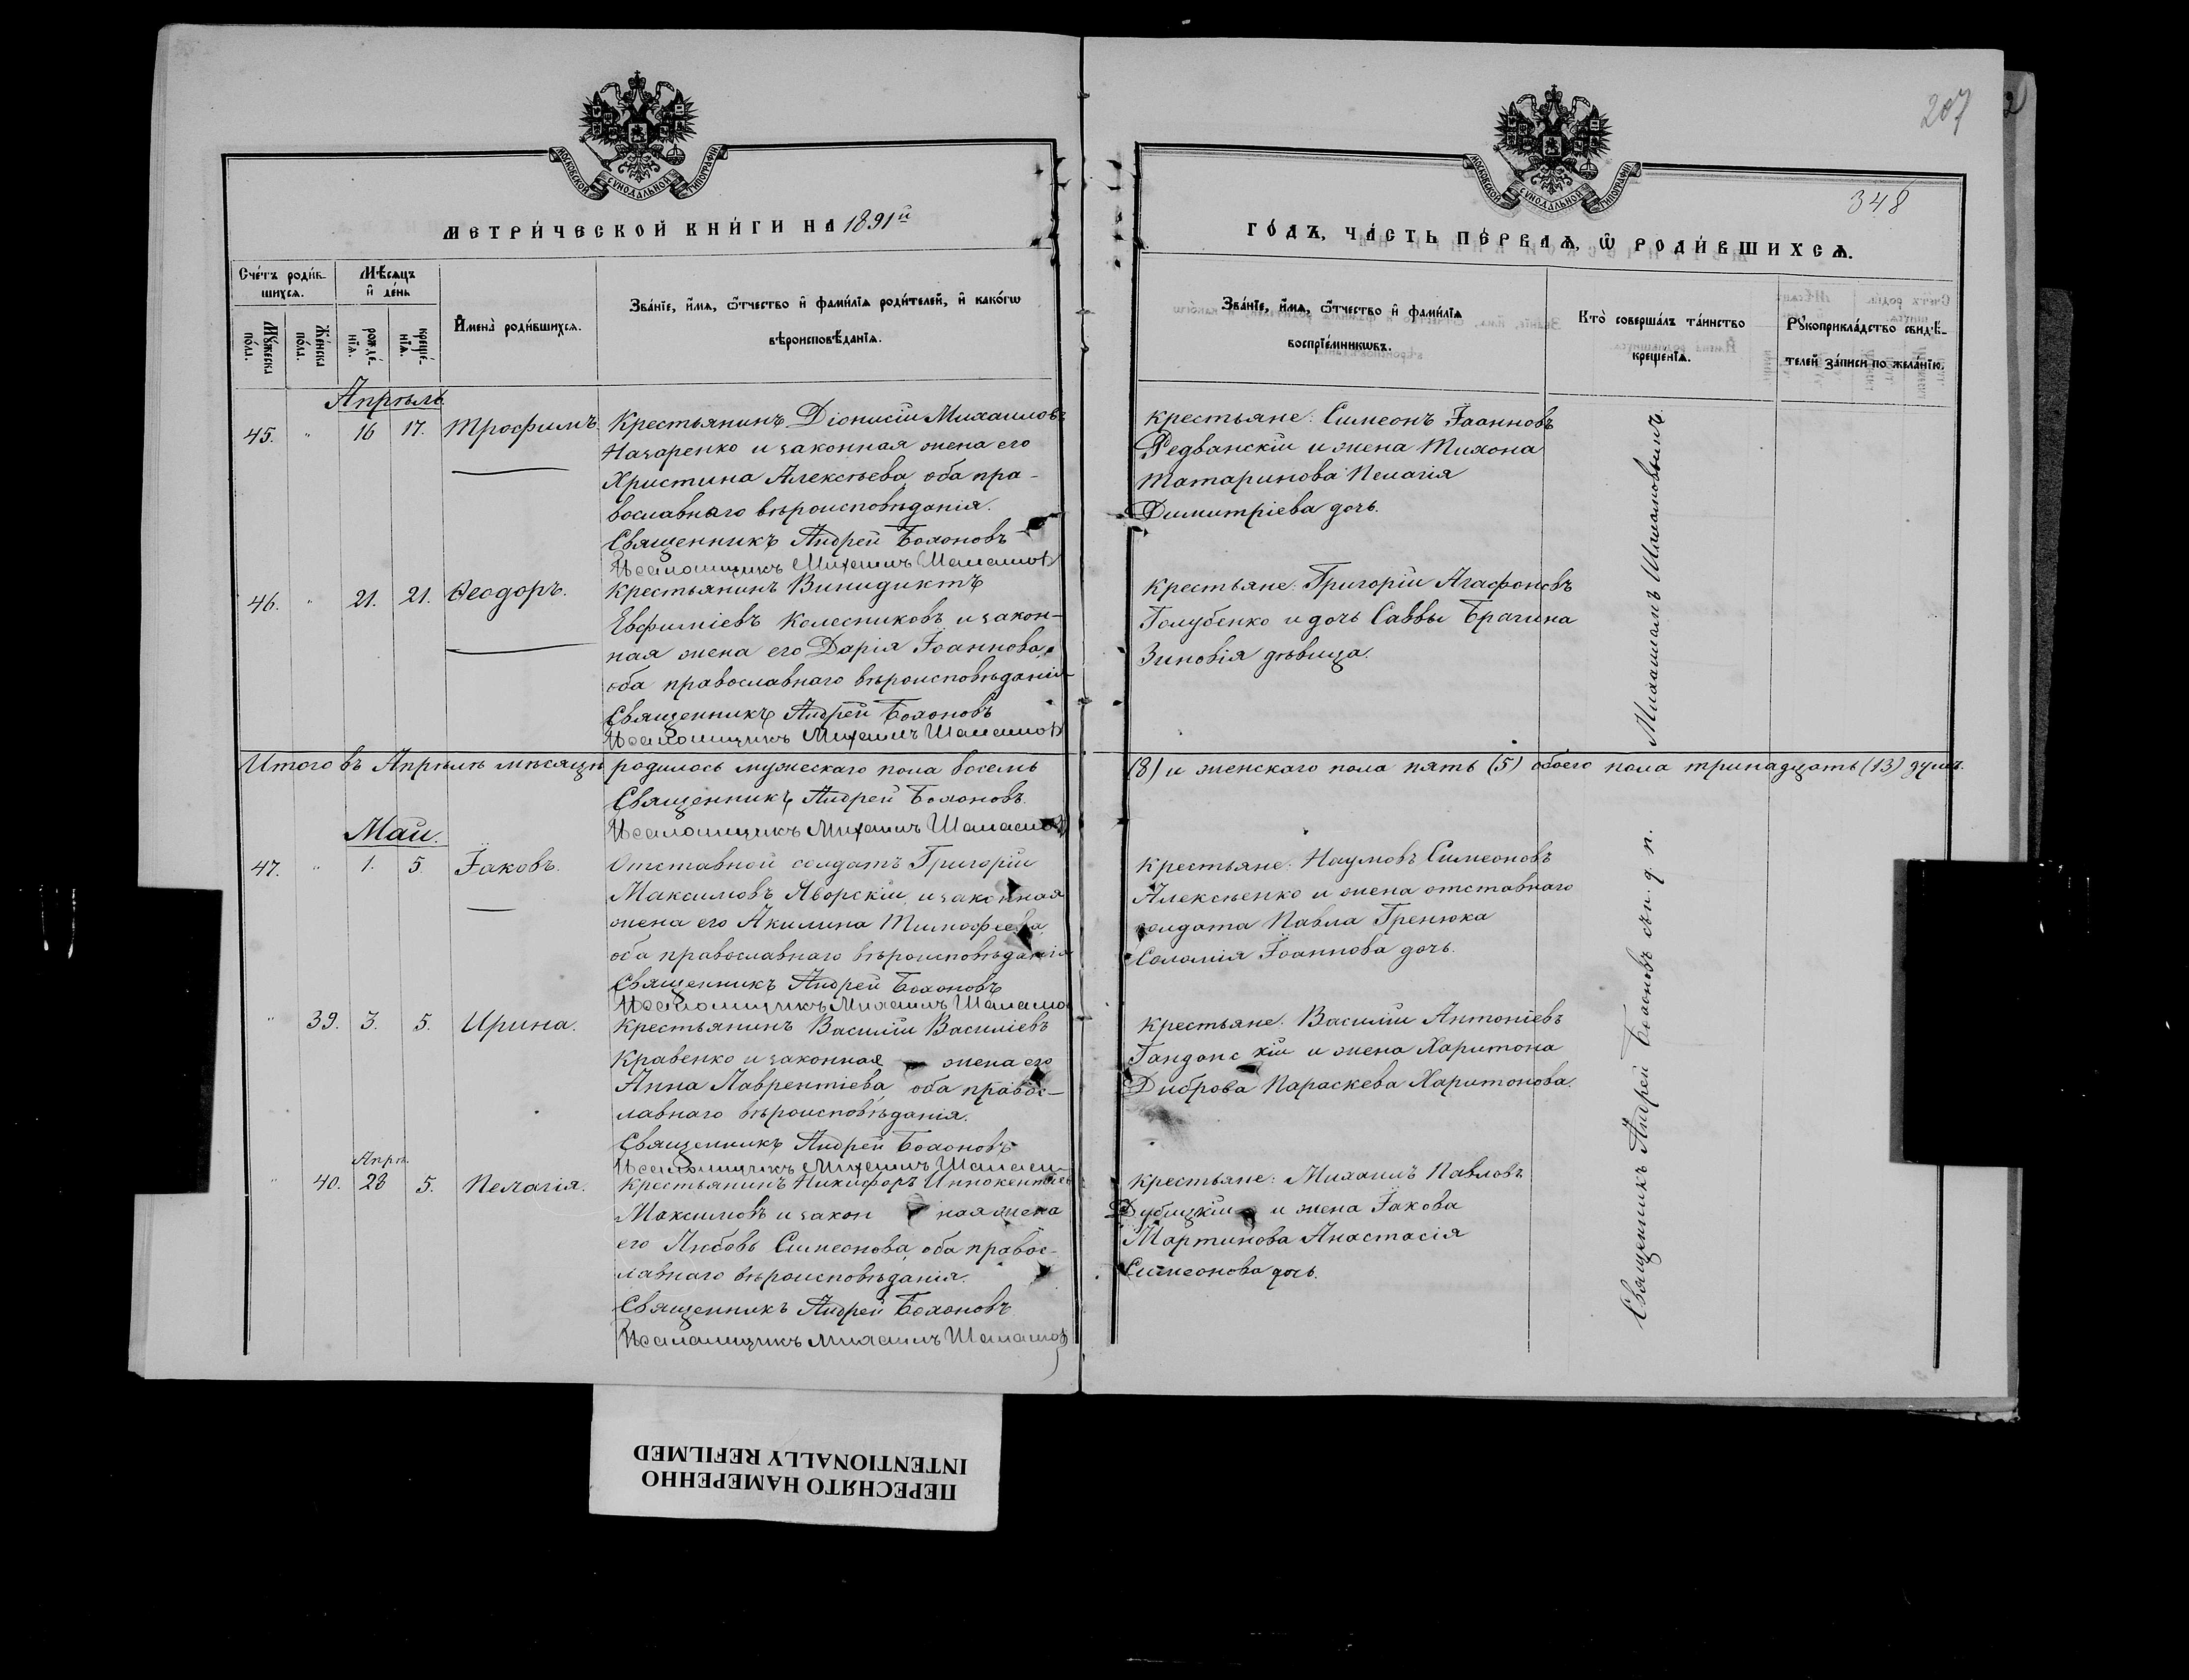 207
2
348
МОСКОВСКОЙ СУНОДАЛЬНОЙ ТИПОГРАФІИ
МОСКОВСКОЙ СУНОДАЛЬНОЙ ТИПОГРАФІИ
МЕТРИ́ЧЕСКОЙ КНИ́ГИ НА 1891й
ГО́ДЪ, ЧА́СТЬ ПЕ́РВАѦ, Ѿ РОДИ́ВШИХСѦ.
Сче́тъ роди́в-
шихсѧ.
Мѣ́сѧцъ
и҆ де́нь
Мꙋ́жеска
по́лꙋ.
Же́нска
по́лꙋ.
рожде́-
нїѧ.
креще́-
нїѧ.
И҆мена̀ роди́вшихсѧ.
Зва́нїе, и҆́мѧ, ѻ҆́тчество и҆ фами́лїѧ роди́телей, и҆ како́гѡ
вѣроисповѣ́данїѧ.
Зва́нїе, и҆́мѧ, ѻ҆́тчество и҆ фами́лїѧ
воспрїе́мникѡвъ.
Кто̀ соверша́лъ та́инство
креще́нїѧ.
Рꙋкоприкла́дство свидѣ́-
телей за́писи по жела́нїю.
Апрѣль
45. " 16 17. Трофимъ.
Крестьянинъ Діонисій Михаиловъ
Назаренко и законная жена его
Христина Алексѣева, оба пра-
вославнаго вѣроисповѣданія.
Священникъ Андрей Бохоновъ
Псаломщикъ Михаилъ
Крестьяне: Симеонъ Іоанновъ
Редванскій и жена Тихона
Татаринова Пелагія
Димитріева дочь.
46. " 21. 21. Ѳеодоръ.
Крестьянинъ Винидиктъ
Евфиміевъ Колесниковъ и закон-
ная жена его Дарія Іоаннова,
оба православнаго вѣроисповѣданія
Священникъ Андрей Бохоновъ
Псаломщикъ Михаилъ
Крестьяне: Григорій Агафоновъ
Голубенко и дочь Саввы Брагина
Зиновія дѣвица.
Итого въ Апрѣлѣ мѣсяцѣ родилось мужескаго пола восемь
(8) и женскаго пола пять (5) обоего пола тринадцать (13) душъ.
Священникъ Андрей Бохоновъ.
Псаломщикъ Михаилъ
Май.
47. " 1. 5. Іаковъ.
Отставной солдатъ Григорій
Максимовъ Яворскій и законная
жена его Акилина Тимофеева,
оба православнаго вѣроисповѣданія
Священникъ Андрей Бохоновъ
Псаломщикъ Михаилъ
Крестьяне: Наумовъ Симеоновъ
Алексѣенко и жена отставнаго
солдата Павла Гренюка
Соломія Іоаннова дочь.
" 39. 3. 5. Ирина.
Крестьянинъ Василій Василіевъ
Кравенко и законная жена его
Анна Лаврентіева, оба правос-
лавнаго вѣроисповѣданія.
Священникъ Андрей Бохоновъ
Псаломщикъ Михаилъ
Крестьяне: Василій Антоніевъ
Гандонскій и жена Харитона
Диброва Параскева Харитонова.
Апрѣ.
" 40. 28 5. Пелагія.
Крестьянинъ Никифоръ Иннокентіев
Максимовъ и законная жена
его Любовь Симеонова, оба правос-
лавнаго вѣроисповѣданія.
Священникъ Андрей Бохоновъ
Псаломщикъ Михаилъ
Крестьяне: Михаилъ Павловъ
Дубицкій и жена Іакова
Мартинова Анастасія
Симеонова дочь.
Священникъ Андрей Бохоновъ съ и. д. п.
ПЕРЕСНЯТО НАМЕРЕННО
INTENTIONALLY REFILMED